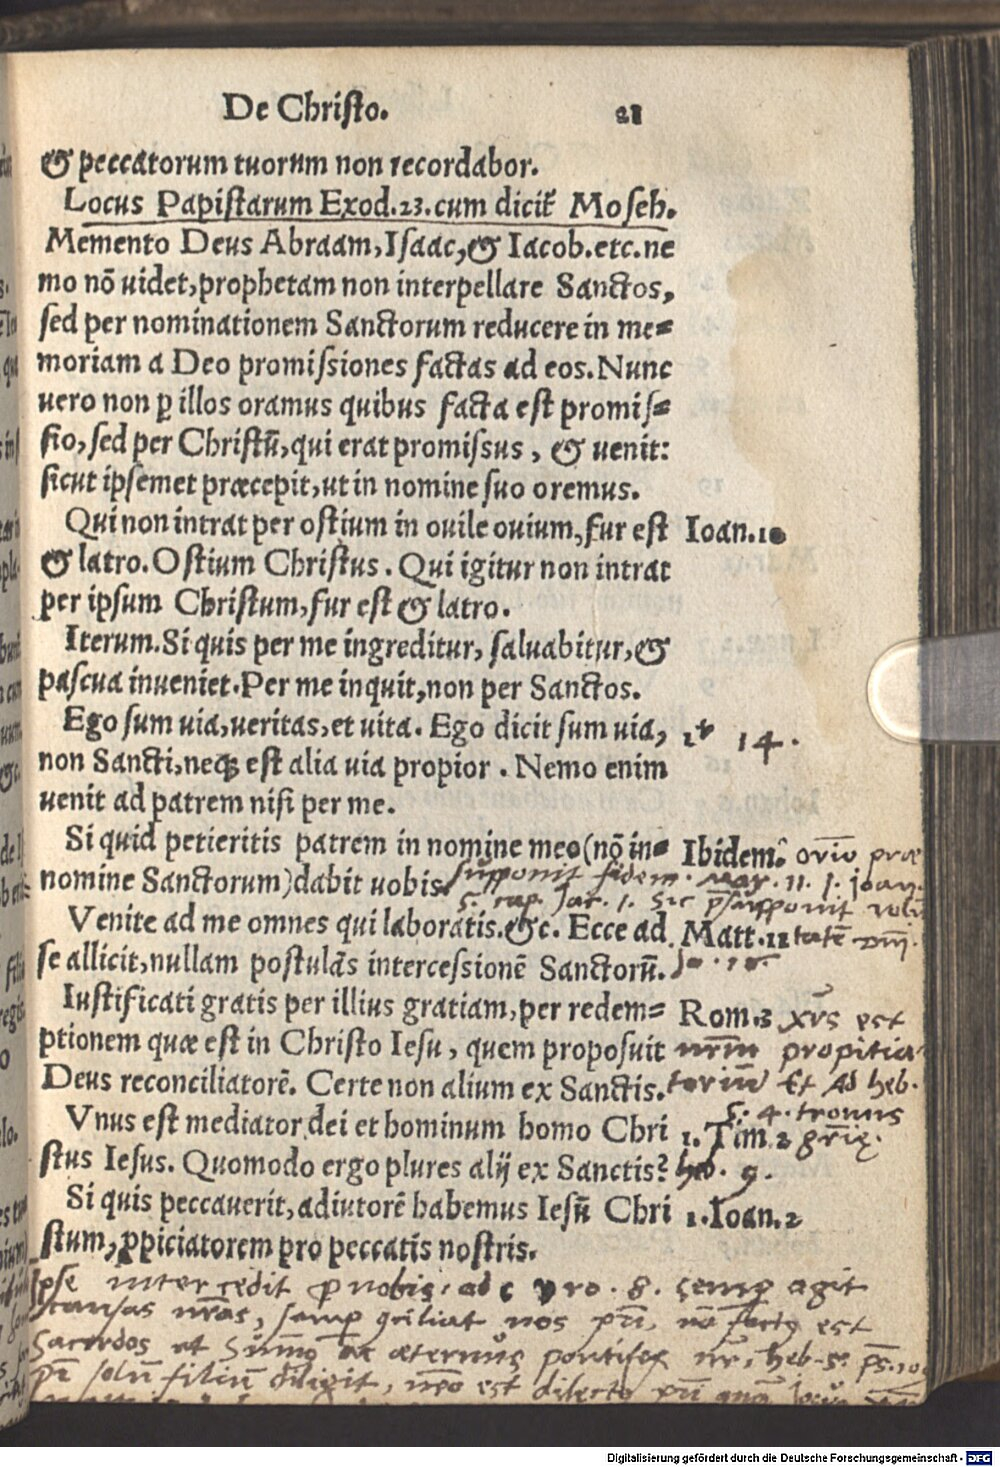 De Christo. 21
& peccatorum tuorum non recordabor.
Locus Papistarum Exod.23.cum dicit᷑ Moseh.
Memento Deus Abraam, Isaac, & Iacob.etc.ne
mo nō uidet, prophetam non interpellare Sanctos,
sed per nominationem Sanctorum reducere in me=
moriam a Deo promissiones factas ad eos. Nunc
uero non ꝑ illos oramus quibus facta est promis=
sio, sed per Christū, qui erat promissus, & uenit:
sicut ipsemet præcepit, ut in nomine suo oremus.
Qui non intrat per ostium in ouile ouium, fur est Ioan.10
& latro. Ostium Christus. Qui igitur non intrat
per ipsum Christum, fur est & latro.
Iterum. Si quis per me ingreditur, saluabitur, &
pascua inueniet. Per me inquit, non per Sanctos.
Ego sum uia, ueritas, et uita. Ego dicit sum uia, 14.
non Sancti, neqꝫ est alia uia propior. Nemo enim
uenit ad patrem nisi per me.
Si quid petieritis patrem in nomine meo (nō in= Ibidem.
nomine Sanctorum) dabit uobis. supponit fidem. Mar. 11. 1. Joan.
5. cap. Jac. 1. Sic
Venite ad me omnes qui laboratis. &c. Ecce ad Matt.11
se allicit, nullam postulās intercessionē Sanctorū.
Iustificati gratis per illius gratiam, per redem= Rom.3 xp̄s est
ptionem quæ est in Christo Iesu, quem proposuit nr̄m propitia
Deus reconciliatorē. Certe non alium ex Sanctis. toriū Et Ad heb.
4. tronus
Vnus est mediator dei et hominum homo Chri 1.Tim.2 gr̄ię.
stus Iesus. Quomodo ergo plures alij ex Sanctis? heb. 9.
Si quis peccauerit, adiutorē habemus Iesū Chri 1.Ioan.2
stum, ꝓpiciatorem pro peccatis nostris.
Ipse intercedit ꝓ nobis, ad ro. 8. semꝑ agit
causas nr̄as, semꝑ nos est
Sacerdos et æternus pontifex nr̄, heb. 5. ps.
solū filiū diligit, est